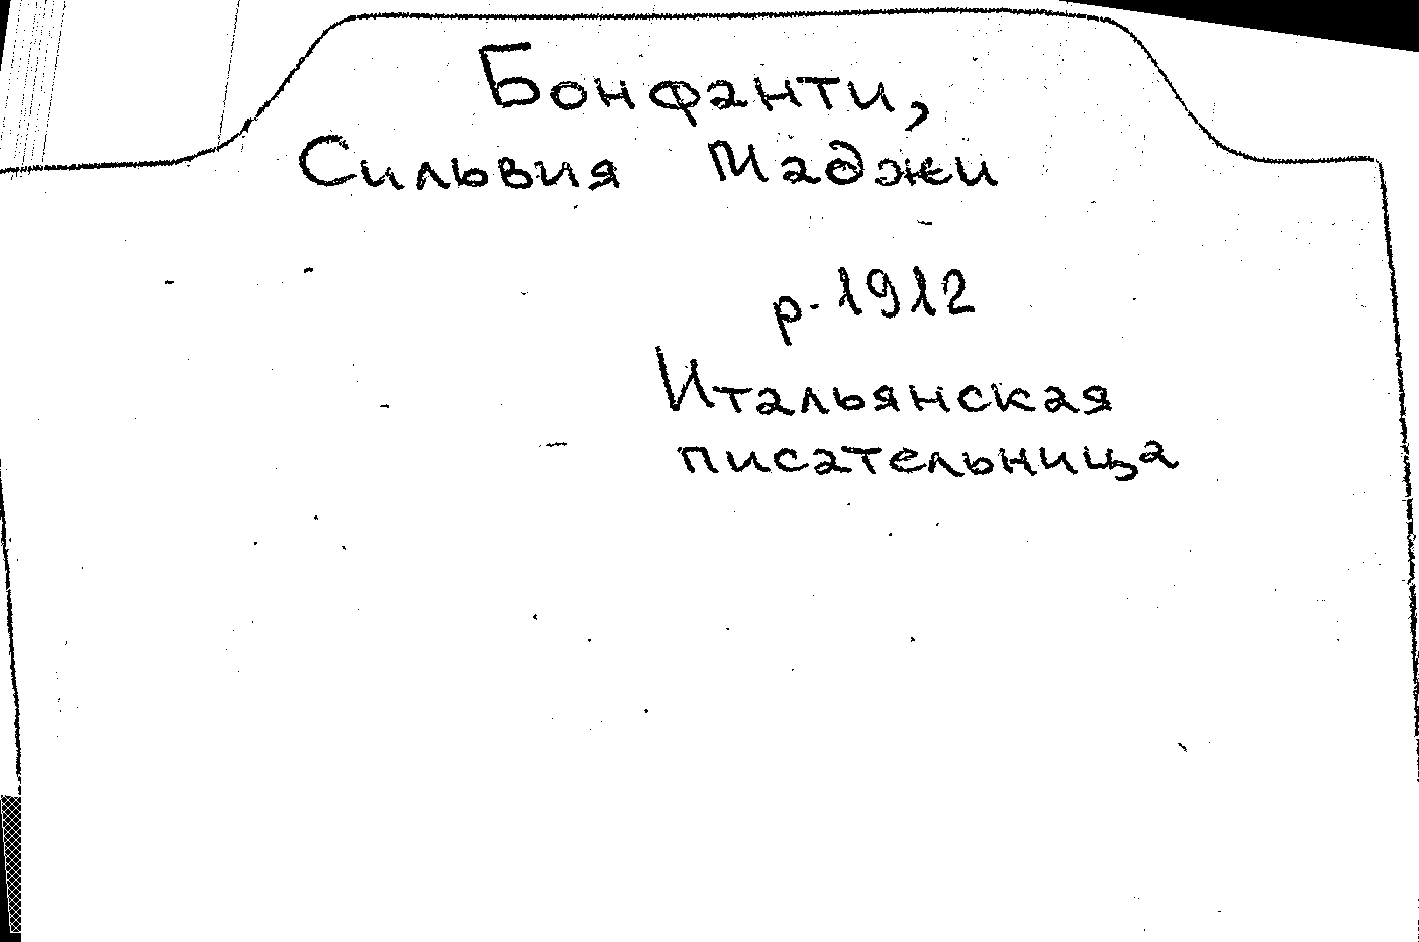 Бонфанти,
Сильвия Маджи
р. 1912
Итальянская
писательница